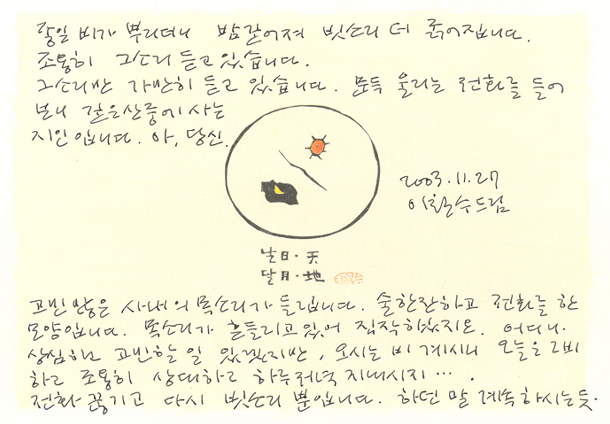 종일 비가 뿌리더니 밤 깊어져 빗소리 더 굵어집니다.
조용히 그소리 듣고 있습니다.
그소리만 가만히 듣고 있습니다. 문득 울리는 전화를 들어
보니 깊은산중에 사는
지인입니다. 아, 당신.
2003.11.27
이철수드림
날日·天
달月·地
고민 많은 사내의 목소리가 들립니다. 술한잔하고 전화를 한
모양입니다. 목소리가 흔들리고있어 짐작하였지요. 어디나
상심하고 고민할 일 있겠지만, 오시는 비 계시니 오늘은 그비
하고 조용히 상대하고 하루저녁 지내시지….
전화 끊기고 다시 빗소리 뿐입니다. 하던 말 계속하시는듯.